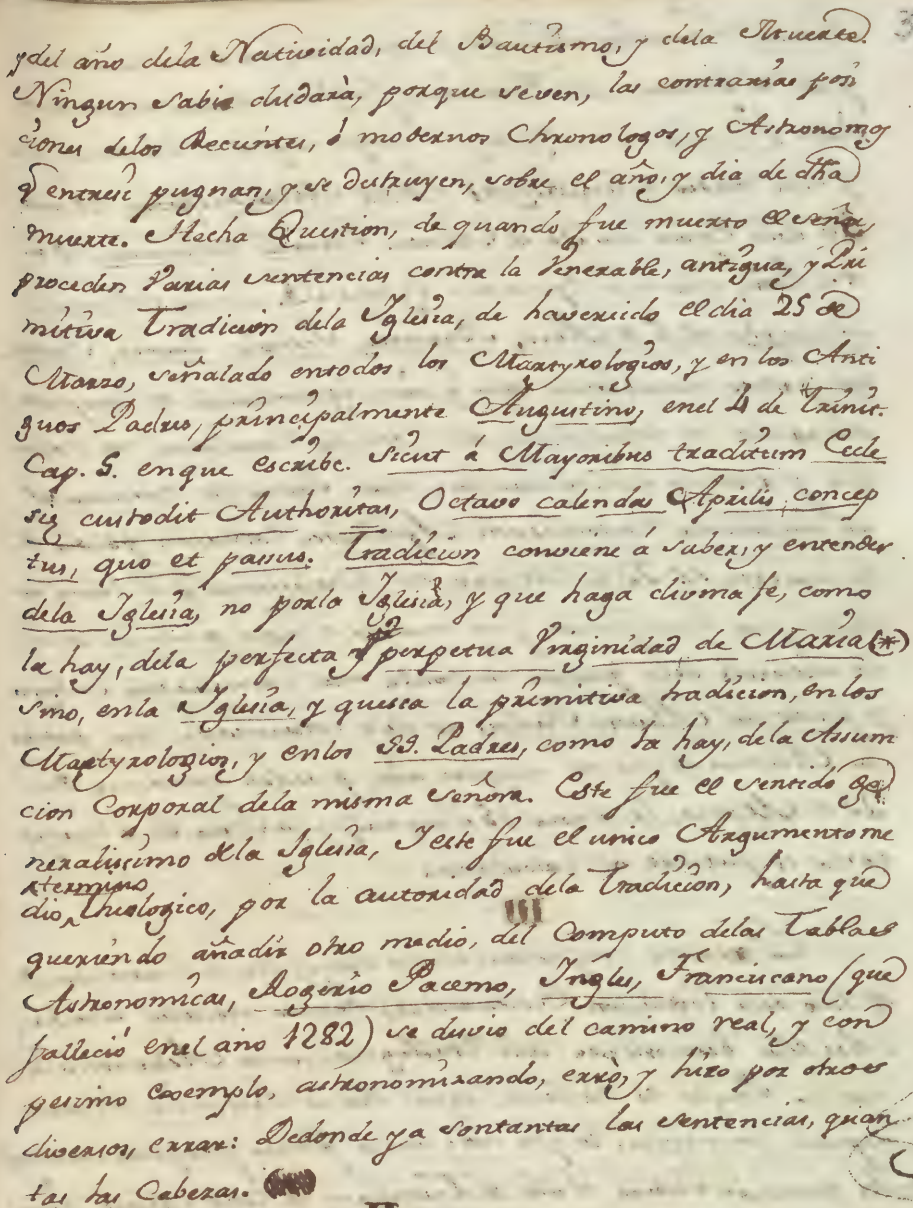 y del año dela Natividad, del Bautismo, y dela Muerte.
Ningun Sabio dudarà, porque seven, las contrarias posi
ciones delos Recientes, ó modernos Chronologos, y Astronomos
q̃ entresi pugnan, y se destruyen, sobre el año, y dia de dha
muerte. Hecha Question, de quando fue muerto el Señor,
proceden Varias sentencias contra la Venerable, antigua, y Pri
mitiva Tradicion dela Iglesia, de haversido el dia 25 de
Marzo, señalado entodos los Martyrologios, y en los Anti
guos Padres, principalmente Augustino, enel 4 de Trinit.
Cap. 5. enque escribe. Sicut á Mayoribus traditum Eccle
się custodit Authoritas, Octavo calendas Aprilis concep
tus, quo et passus. Tradicion conviene á saber, y entender
dela Iglesia, no porla Iglesia, y que haga divina fe, como
la hay, dela perfecta y perpetua Virginidad de Maria (*)
sino, enla Iglesia, y quesea la primitiva tradicion, en los
Martyrologios, y enlos SS. Padres, como la hay, dela Assum
cion Corporal dela misma Señora. Este fue el sentido ge
neralissimo dela Iglesia, Y este fue el unico Argumento me
termino
dio, theologico, por la autoridad dela Tradicion, hasta que
queriendo añadir otro medio, del Computo delas Tablas
Astronomicas, Rogerio Pacemo, Ingles, Franciscano (que
falleció enel año 1282) se desvio del camino real, y con
pesimo exemplo, astronomizando, errò, y hizo por otros
diversos, errar: Dedonde ya sontantas las sentencias, quan
tas las Cabezas.